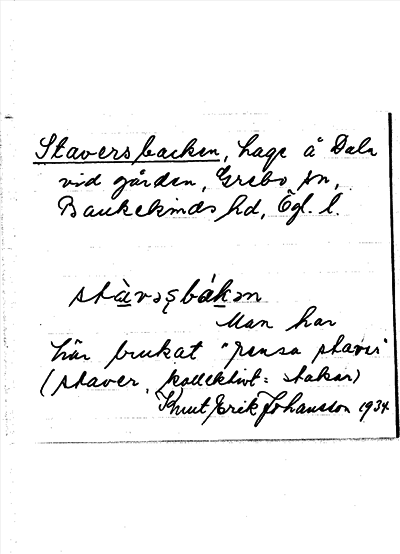 Staversbacken, hage å Dala
vid gården, Grebo sn,
Bankekinds hd, Ögl. l.
stàvəʂbákən
Man har
här brukat "rensa staver"
(staver, kollektivt = stakar)
Knut Erik Johansson 1934